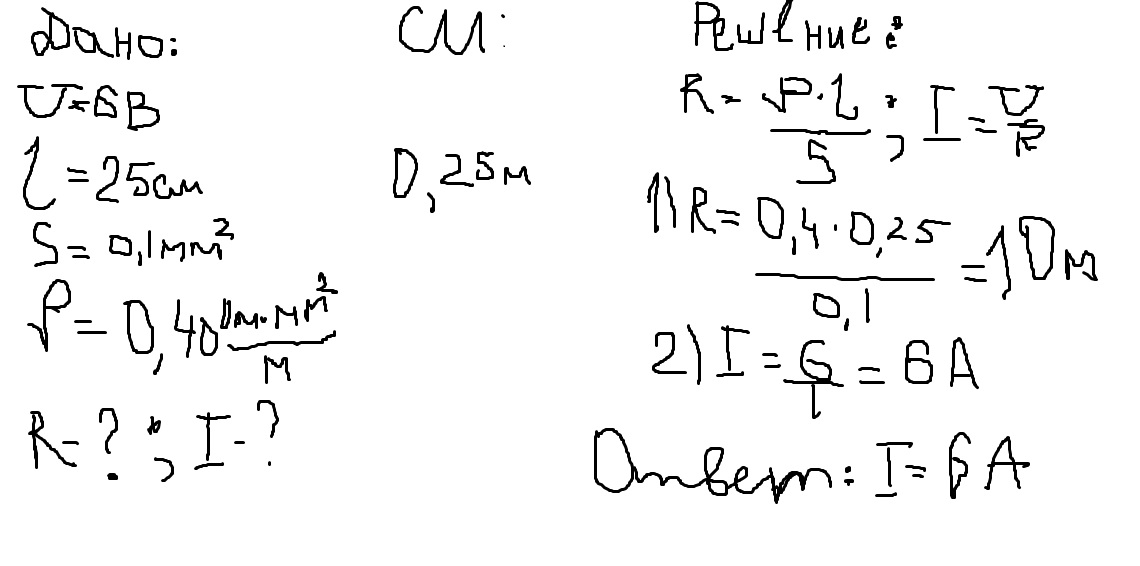 Дано:
U=6В
l = 25см
S = 0,1мм²
ρ = 0,40 Ом·мм²/м
R-?; I-?
СИ:
0,25м
Решение:
R = ρ·l/S; I = U/R
1) R = 0,4·0,25/0,1 = 1 Ом
2) I = 6/1 = 6 А
Ответ: I = 6 А